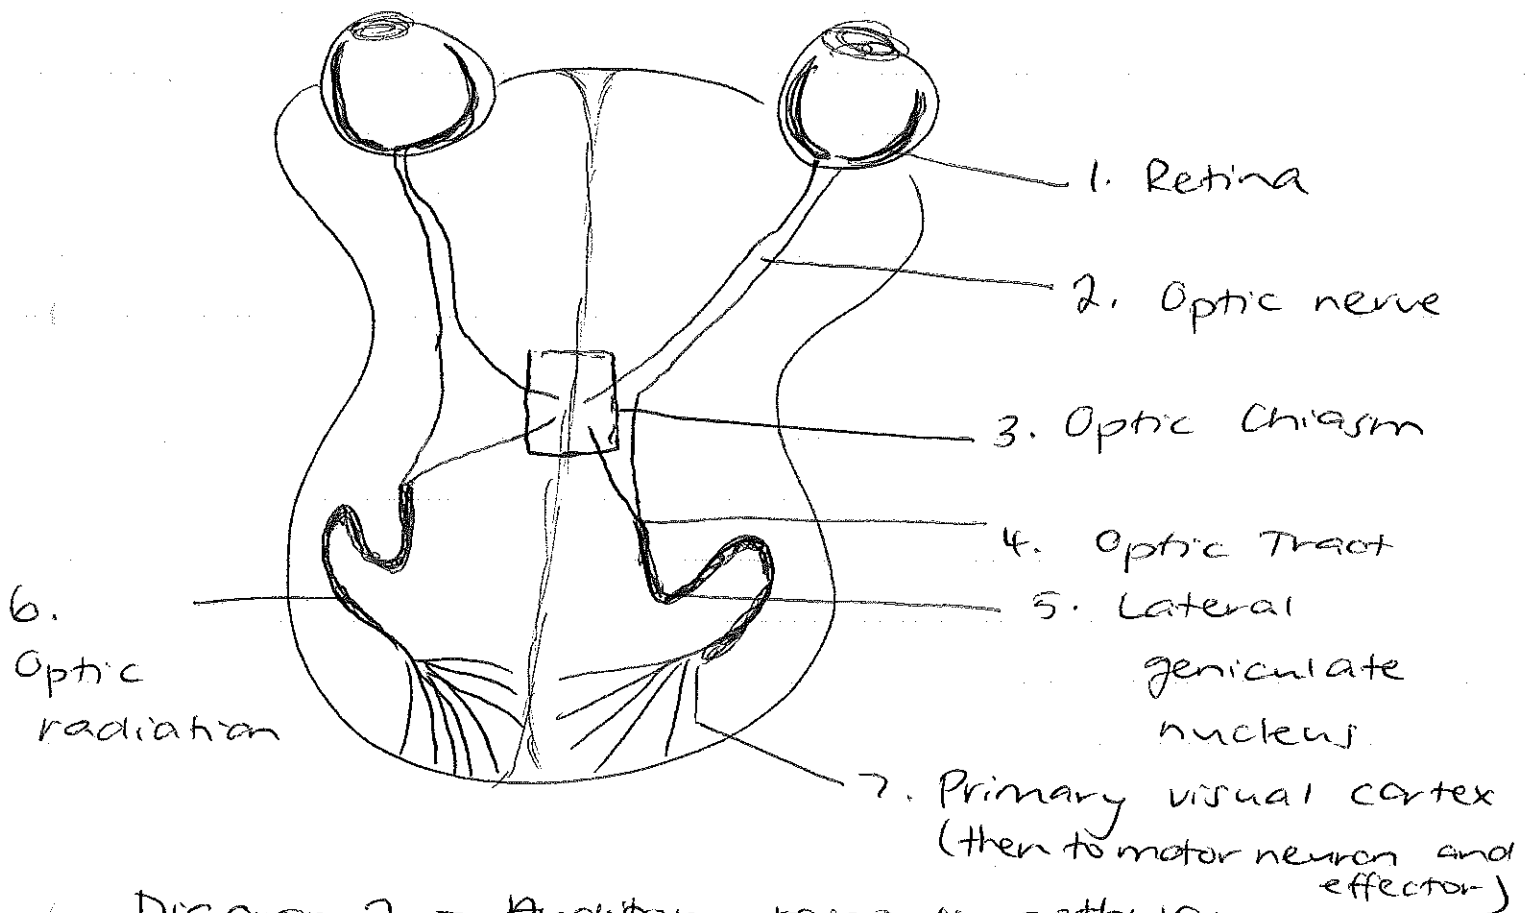 1. Retina
2. Optic nerve
3. Optic Chiasm
4. Optic Tract
5. Lateral
geniculate
nucleus
6.
Optic
radiation
7. Primary visual cortex
(then to motor neuron and
effector)
Diagram 2 -